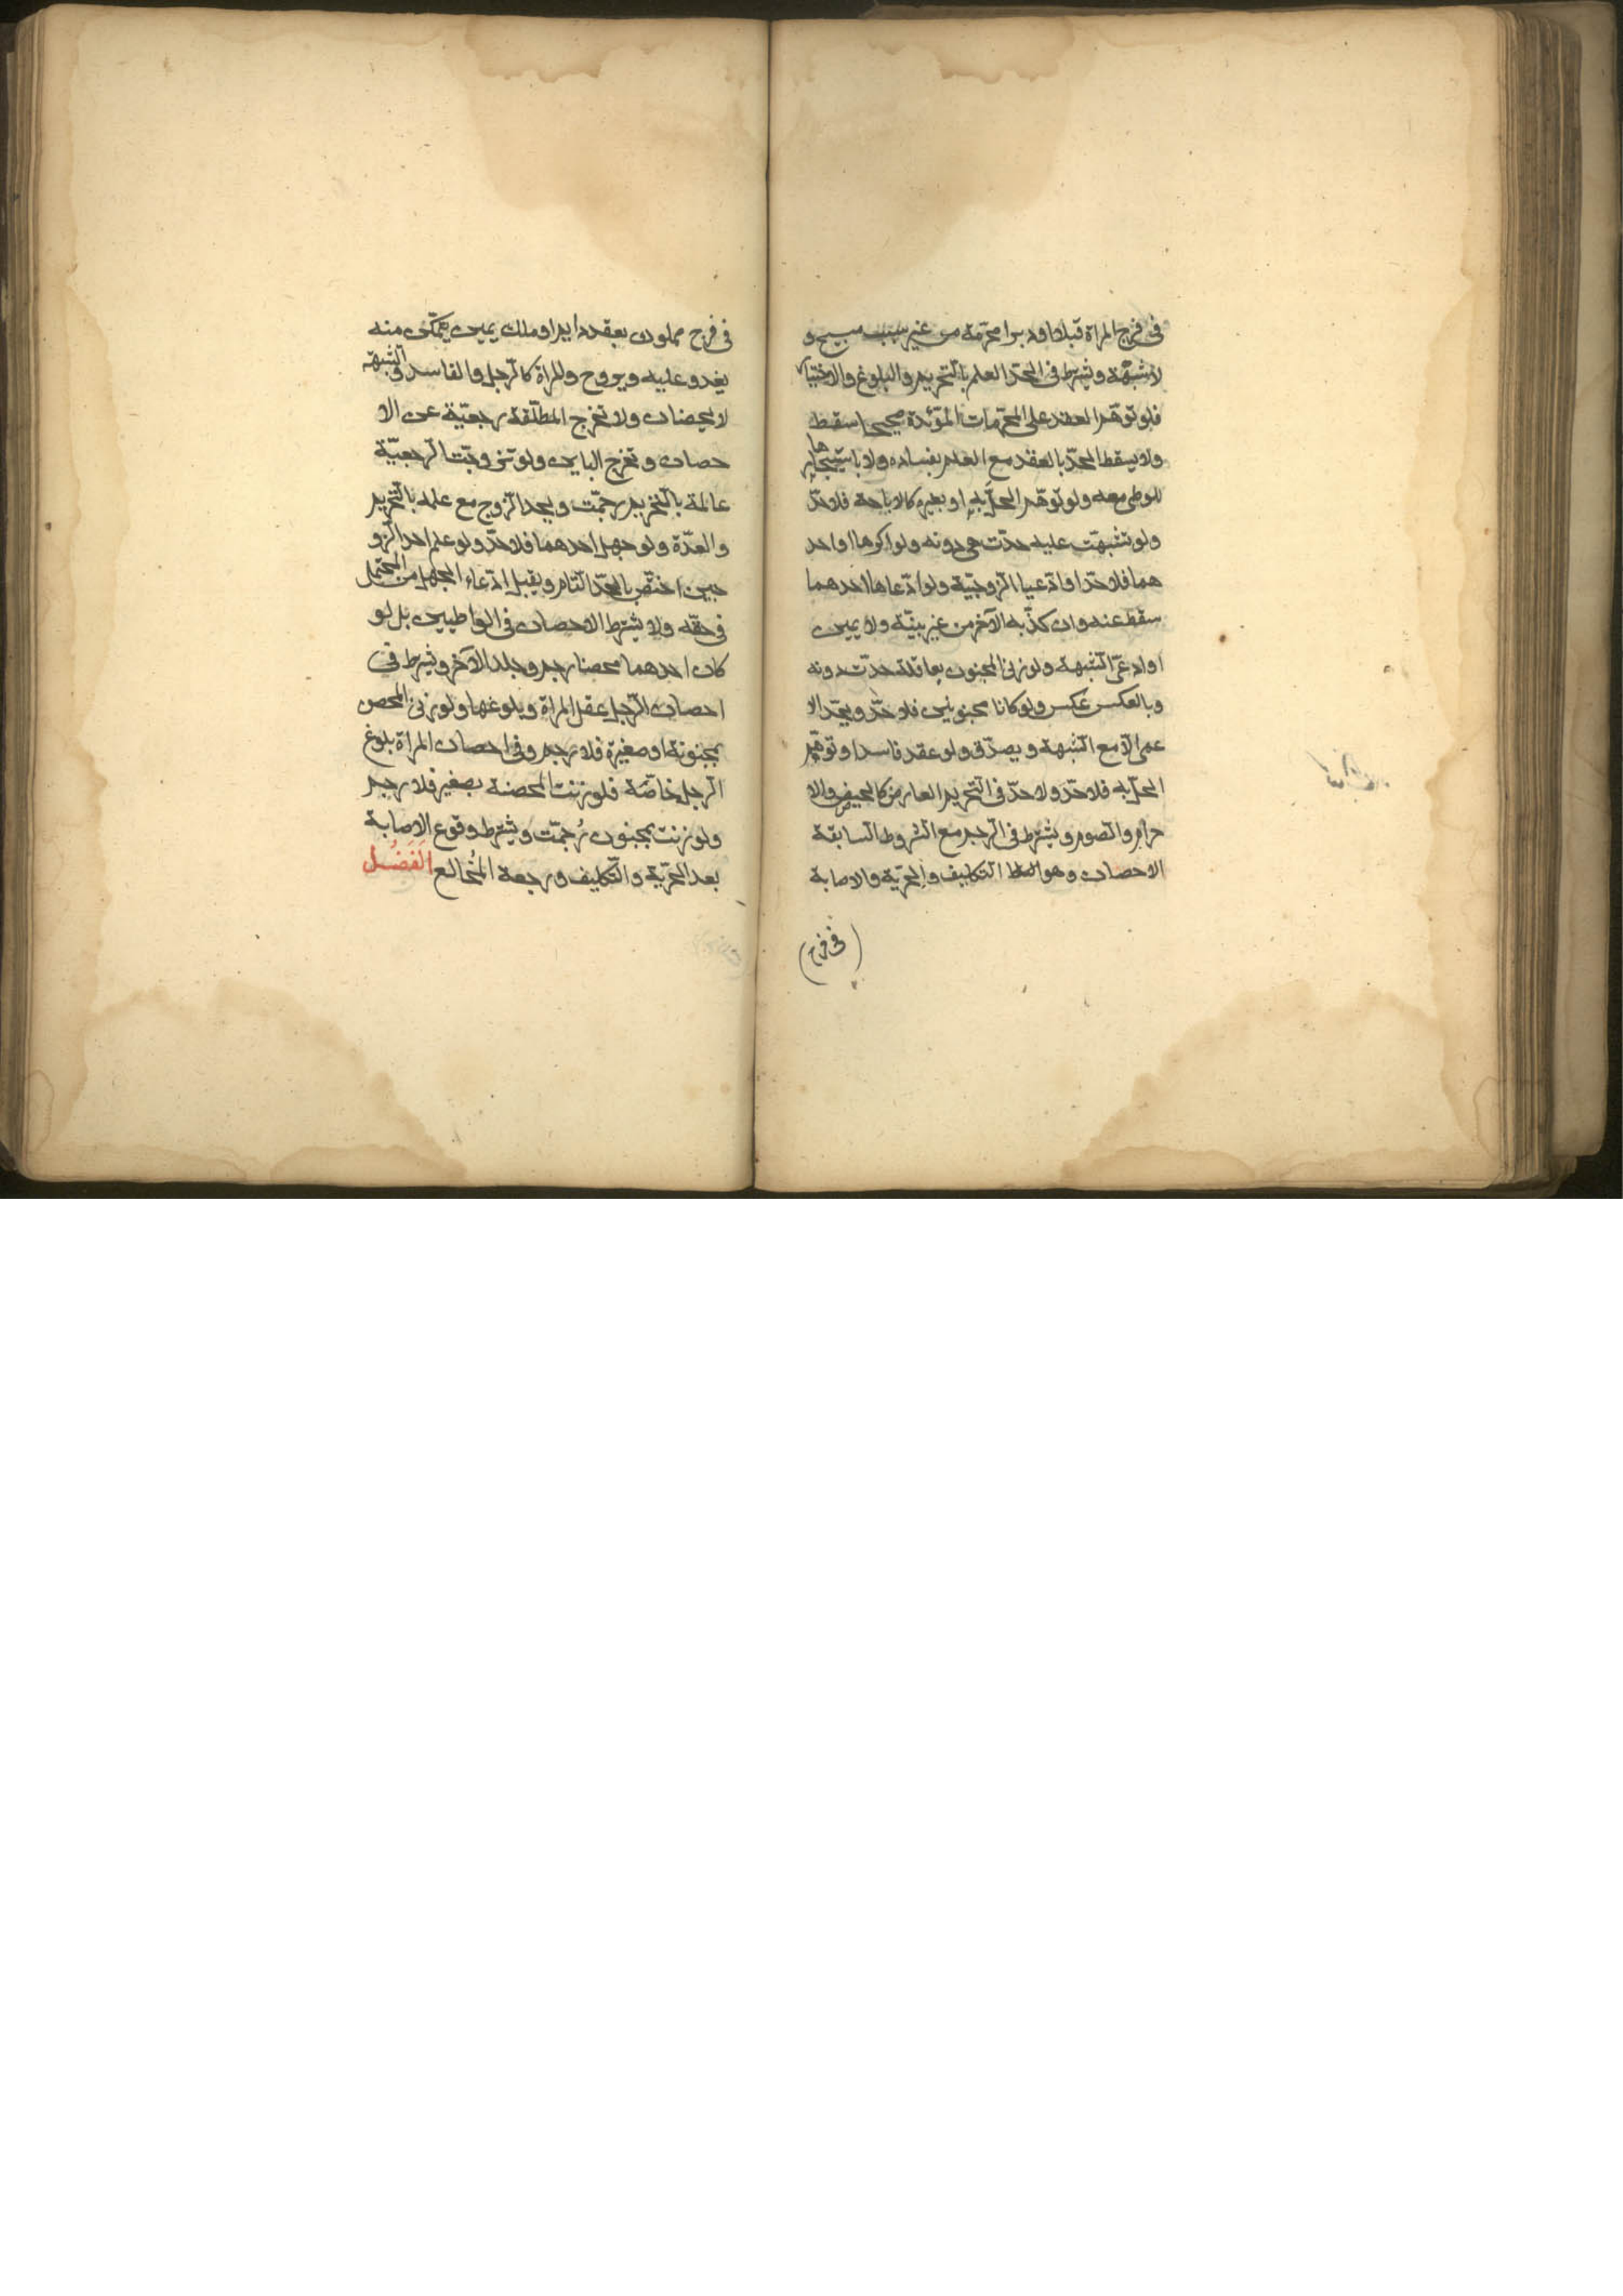 في فرج المراة قبلا او دبرا محرّمة من غير سبب مبيح و
لا شبهة ويشترط في الحدّ العلم بالتّحريم والبلوغ والاختيار
فلو توهّم العقد على المحّرمات المؤبّدة صحيحا سقط
ولا يسقط الحدّ بالعقد مع العلم بفساده ولا باستيجارها
للوطي معه ولو توهّم الحلّ به او بغيره كالاباحة فلا حدّ
ولو تشبهّت عليه حدّت هي دونه ولو اكرها او احد
هما فلا حدّ او ادّعيا الزوجيّة ولو ادّعاها احدهما
سقط عنه وان كذّبه الآخر من غير بيّنة ولا يمين
او ادعىّ الشبهة ولو زنى المجنون بعاقلة حدّت دونه
وبالعكس عكس ولو كانا مجنونين فلا حدّ ويحدّ الا
عمى الّا مع الشبهة ويصدّق ولو عقد فاسدا وتوهّم
الحلّ به فلا حدّ ولا حدّ في التّحريم العارض كالحيض والا
حرام والصوم ويشترط في الرجم مع الشروط السابقة
الاحصان وهو التكليف والحرّية والاصابة
(في فرج)
في فرج مملوك بعقد دايم او ملك يمين يتمكّن منه
يغدو عليه ويروح وللمراة كالرّجل والفاسد والشبهة
لا يحصنان ولا تخرج المطلّقة رجعيّة عن الا
حصان وتخرج الباين ولو تزوجّت الرجعيّة
عالمة بالتّحريم رجمّت ويحد الزوج مع علمه بالتّحريم
والعدّة ولو جهل احدهما فلا حدّ ولو علم احد الزو
جين اختصّ بالحدّ التام ويقبل ادّعاء الجهل من المحتمل
في حقّه ولا يشترط الاحصان في الواطيين بل لو
كان احدهما محصنا رجم وجلد الآخر ويشترط في
احصان الرّجل عقل المراة وبلوغها ولو زنى المحصن
بمجنونة او صغيرة فلا رجم وفي احصان المراة بلوغ
الرجل خاصّة فلو زنت المحصنة بصغير فلا رجم
ولو زنت بمجنون رُجمّت ويشترط وقوع الاصابة
بعد الحرّية والتّكليف ورجعة المُخالع الفَصْل